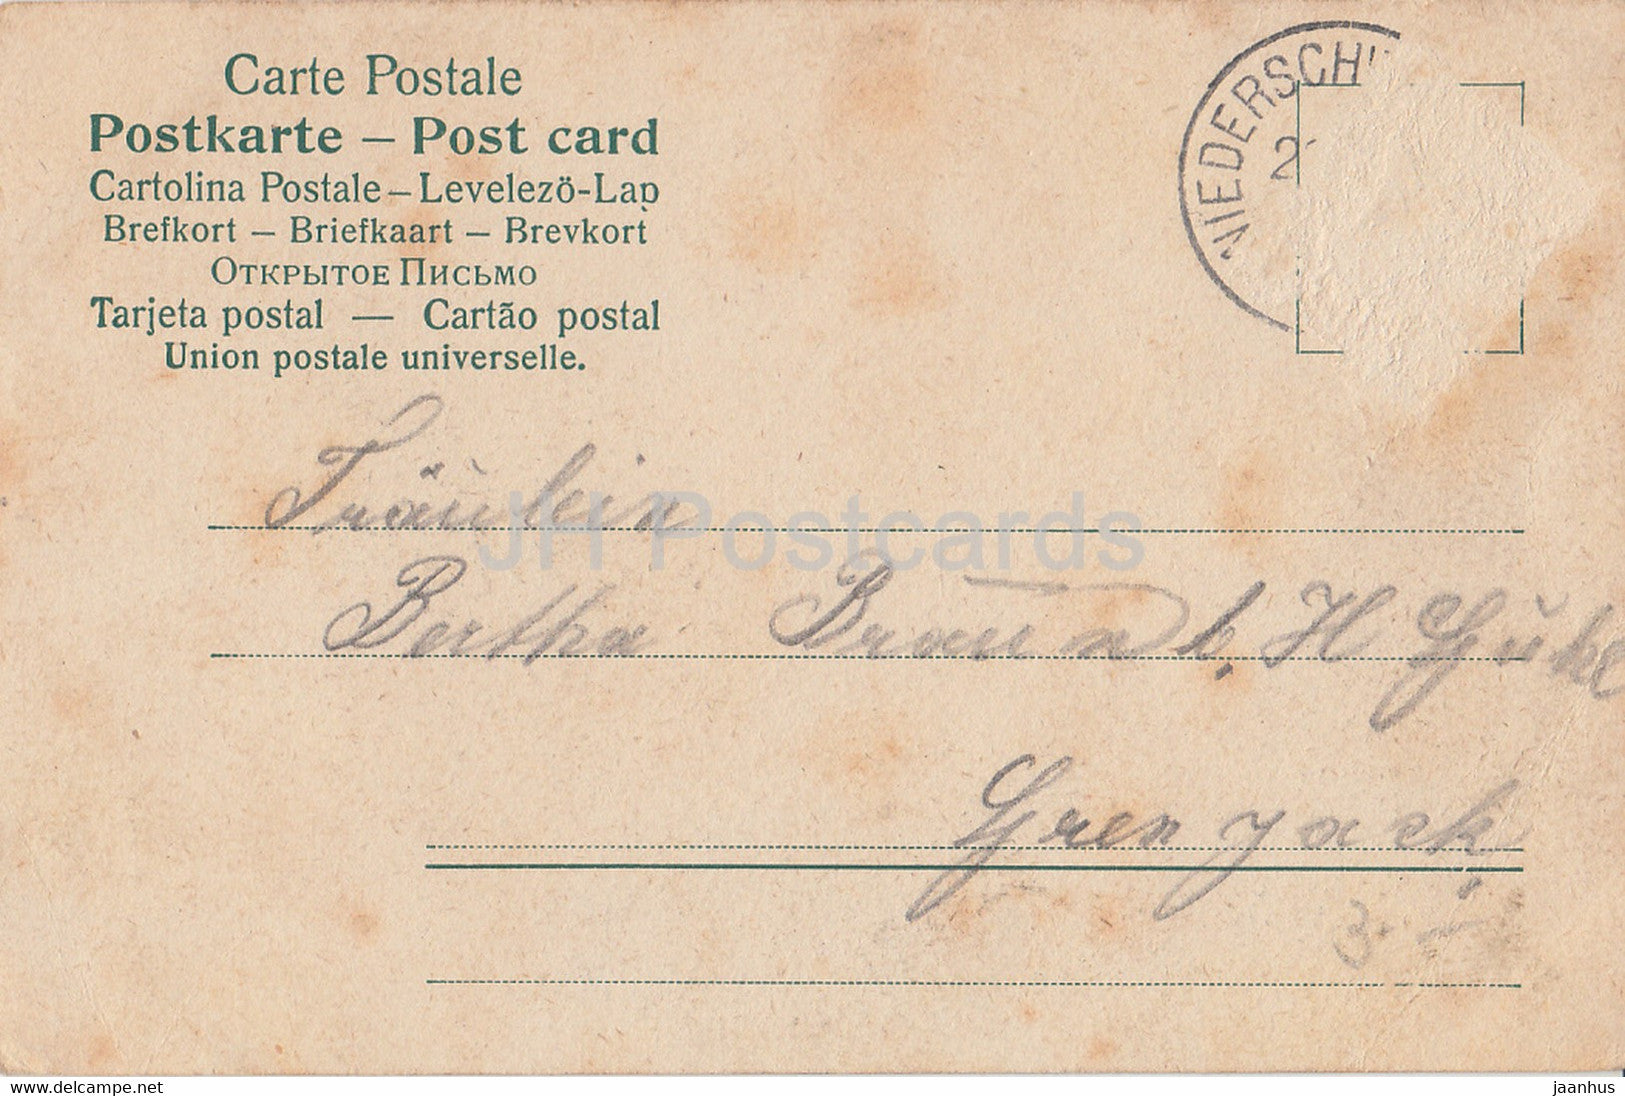 Carte Postale
Postkarte – Post card
Cartolina Postale – Levelezö-Lap
Brefkort – Briefkaart – Brevkort
Открытое Письмо
Tarjeta postal — Cartão postal
Union postale universelle.
NIEDERSCH
2
Fräulein
Bertha Braun b. H Gühl
Grenzach
3.–
JH Postcards
delcampe.net
jaanhus